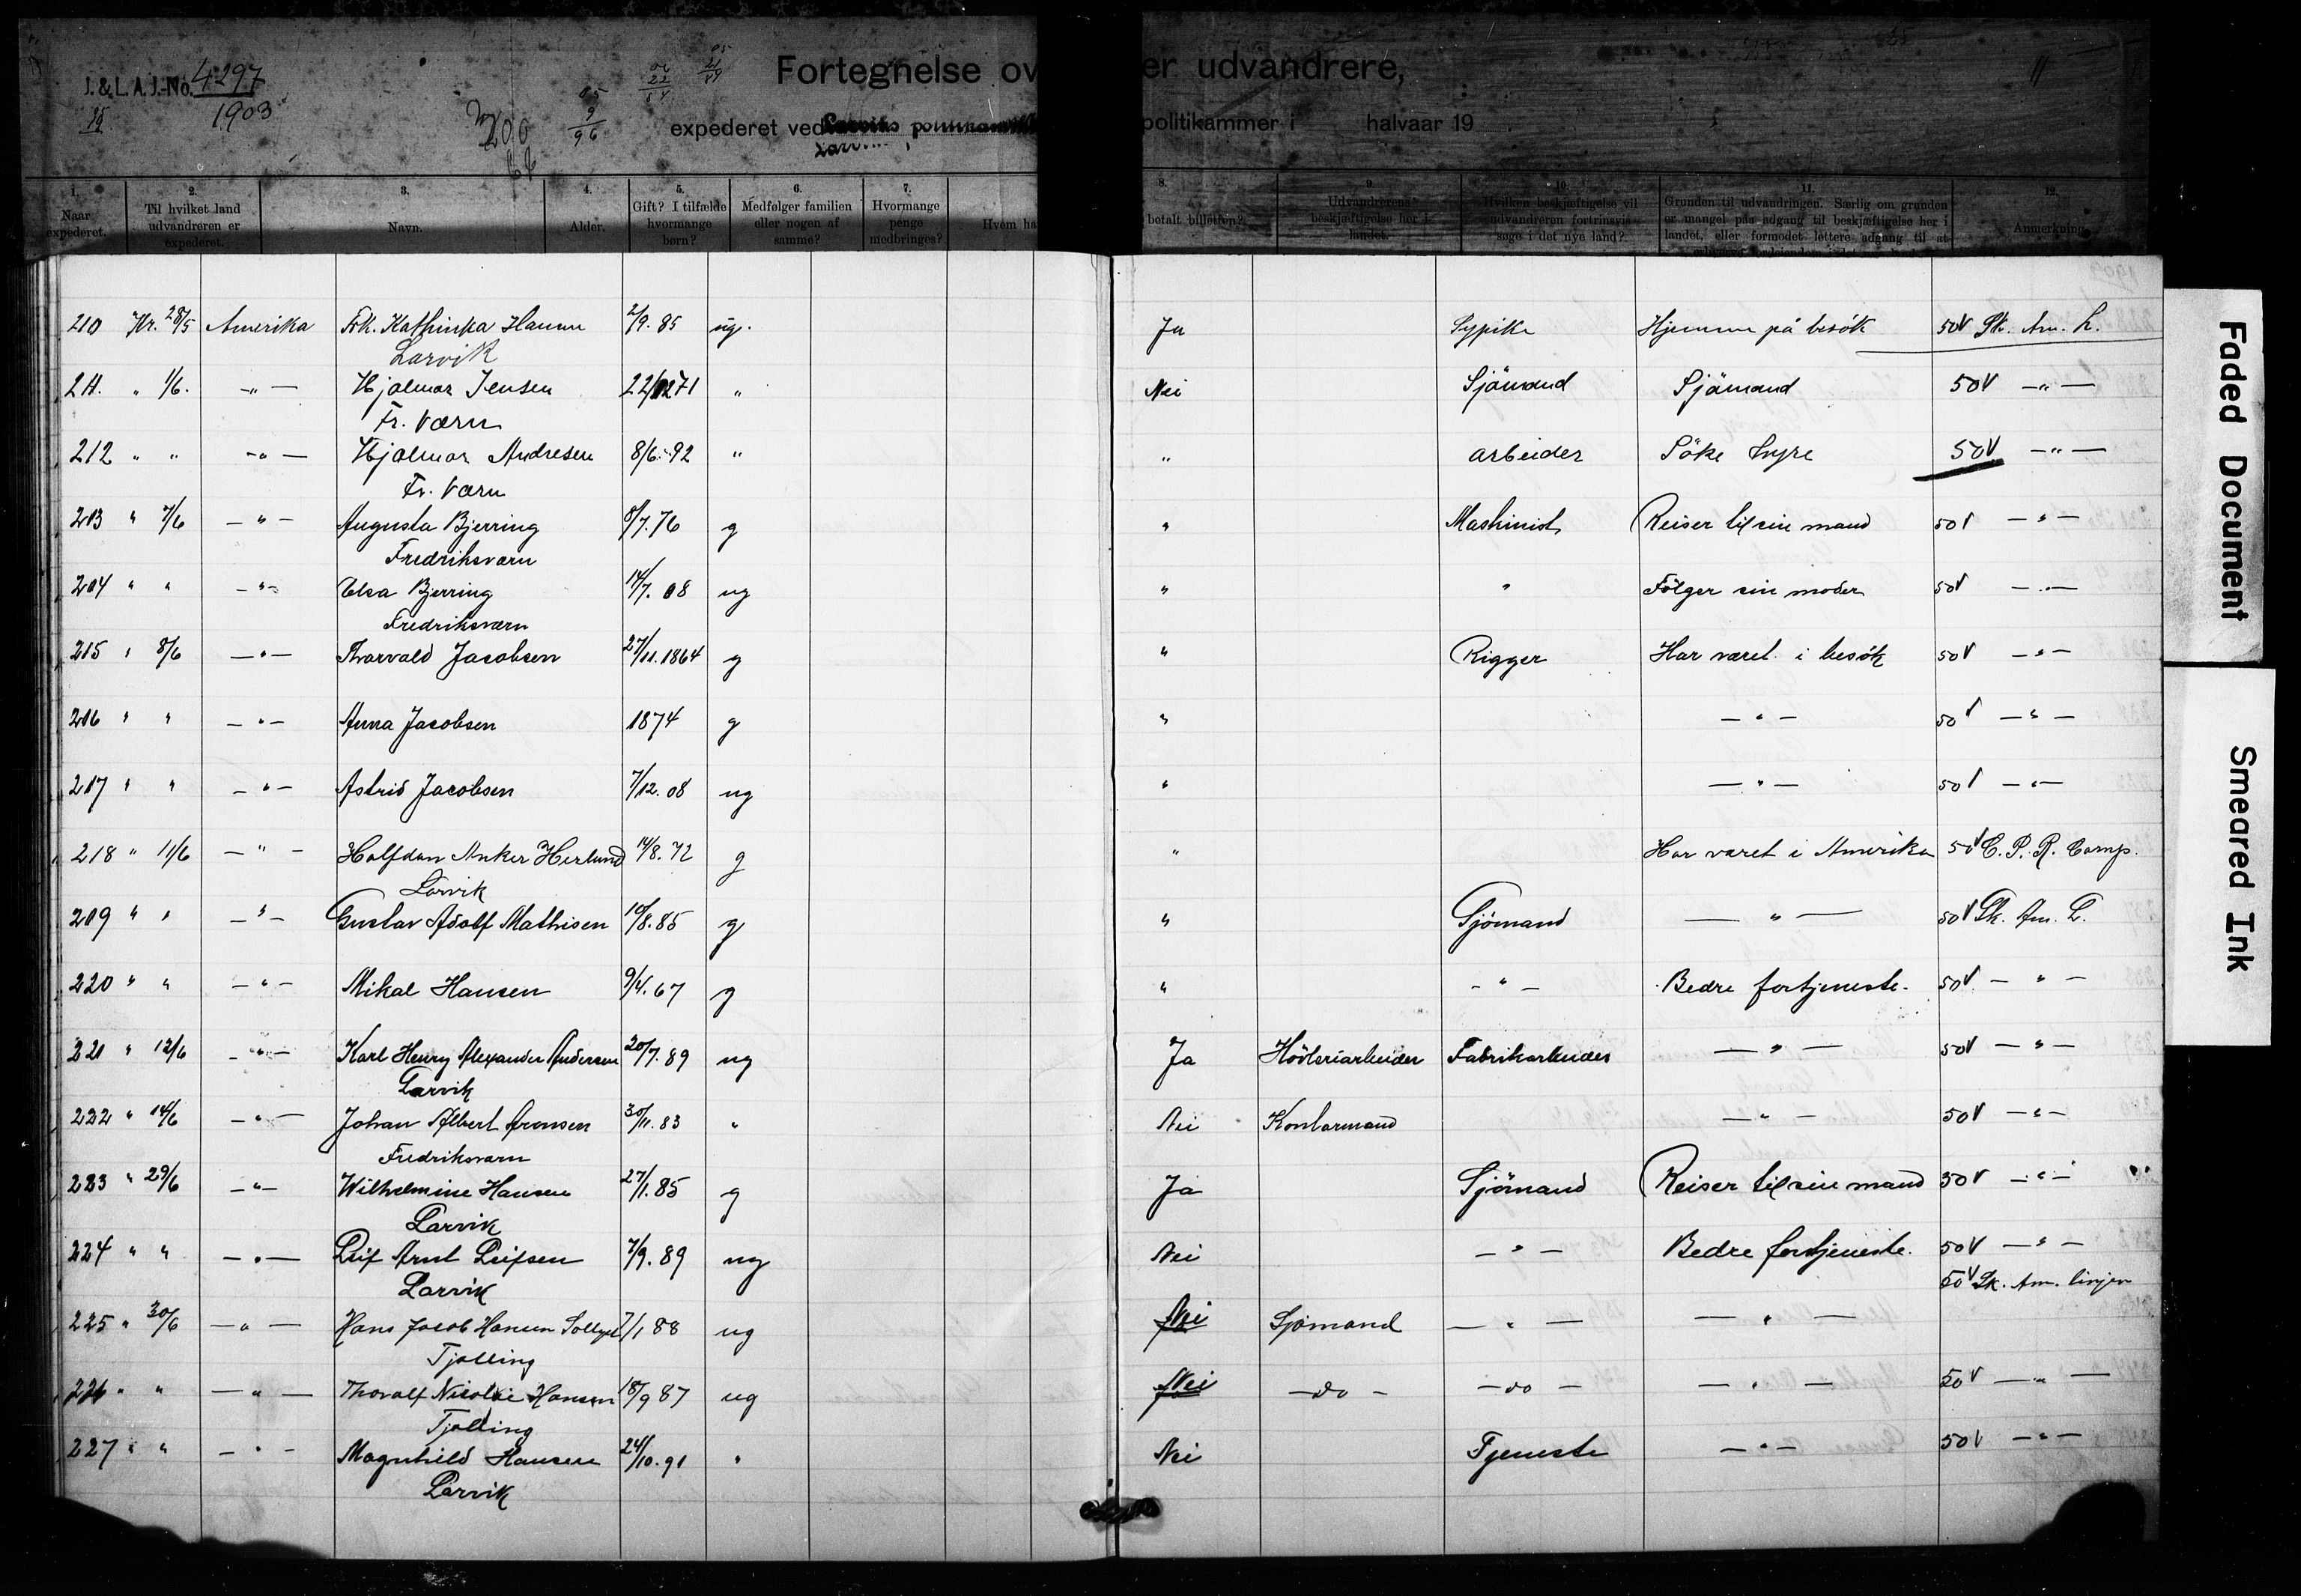 J. & L. A. J.-No. 4297
1903
Fortegnelse ov er udvandrere,
expederet ved Larviks politikammer politikammer i halvaar 19
200
9/96
1. Naar expederet.
2. Til hvilket land udvandreren er expederet.
3. Navn.
4. Alder.
5. Gift? I tilfælde hvormange børn?
6. Medfølger familien eller nogen af samme?
7. Hvormange penge medbringes?
8. Hvem ha betalt billetten?
9. Udvandrerens beskjæftigelse her i landet.
10. Hvilken beskjæftigelse vil udvandreren fortrinsvis søge i det nye land?
11. Grunden til udvandringen. Særlig om grunden er mangel paa adgang til beskjæftigelse her i landet, eller formodet lettere adgang til at
12. Anmerkning.
210 Kr. 28/5 Amerika Frk. Kathinka Hansen 2/9.85 ug. Ja Sypike Hjemme på besök 50V Sk. Am. L.
Larvik
211. " 1/6. -"- Hjalmar Jensen 22/12 71 " Nei Sjömand Sjömand 50V -"-
Fr. Værn
212 " " -"- Hjalmar Andresen 8/6.92 " " arbeider Söke hyre 50V -"-
Fr. Værn
213 " 7/6 -"- Augusta Bjerring 8/7.76 g " Maskinist Reiser til sin mand 50V -"-
Fredriksværn
204 " " -"- Elsa Bjerring 14/7.08 ug " " Følger sin moder 50V -"-
Fredriksværn
215 " 8/6 -"- Thorvald Jacobsen 27/11.1864 g " Rigger Har været i besök 50V -"-
216 " " -"- Anna Jacobsen 1874 g " -"- 50V -"-
217 " " -"- Astrid Jacobsen 7/12.08 ug " -"- 50V -"-
218 " 11/6 -"- Halfdan Anker Herlund 14/8.72 g " Har været i Amerika 50V C. P. R. Comp.
Larvik
209 " " -"- Gustav Adolf Mathisen 10/8.85 g " Sjömand -"- 50V Sk. Am. L.
220 " " -"- Mikal Hansen 9/4.67 g " -"- Bedre fortjeneste. 50V -"-
221 " 12/6 -"- Karl Henry Alexander Andersen 20/7.89 ug Ja Hövleriarbeider Fabrikarbeider -"- 50V -"-
Larvik
222 " 14/6 -"- Johan Albert Aronsen 30/11.83 " Nei Kontormand -"- 50V -"-
Fredriksværn
223 " 29/6 -"- Wilhelmine Hansen 27/1.85 g Ja Sjömand Reiser til sin mand 50V -"-
Larvik
224 " " -"- Leif Arnt Leifsen 7/9.89 ug Nei -"- Bedre fortjeneste. 50V -"-
Larvik 50V Sk. Am. linjen
225 " 30/6 -"- Hans Jacob Hansen 7/1 88 ug Nei Sjömand -"- -"-
Tjølling
226 " " -"- Thoralf Nicolai Hansen 18/9 87 ug Nei -do- -do- -"- 50V -"-
Tjølling
227 " " -"- Magnhild Hansen 24/10.91 " Nei Tjeneste -"- 50V -"-
Larvik
Faded Document
Smeared Ink